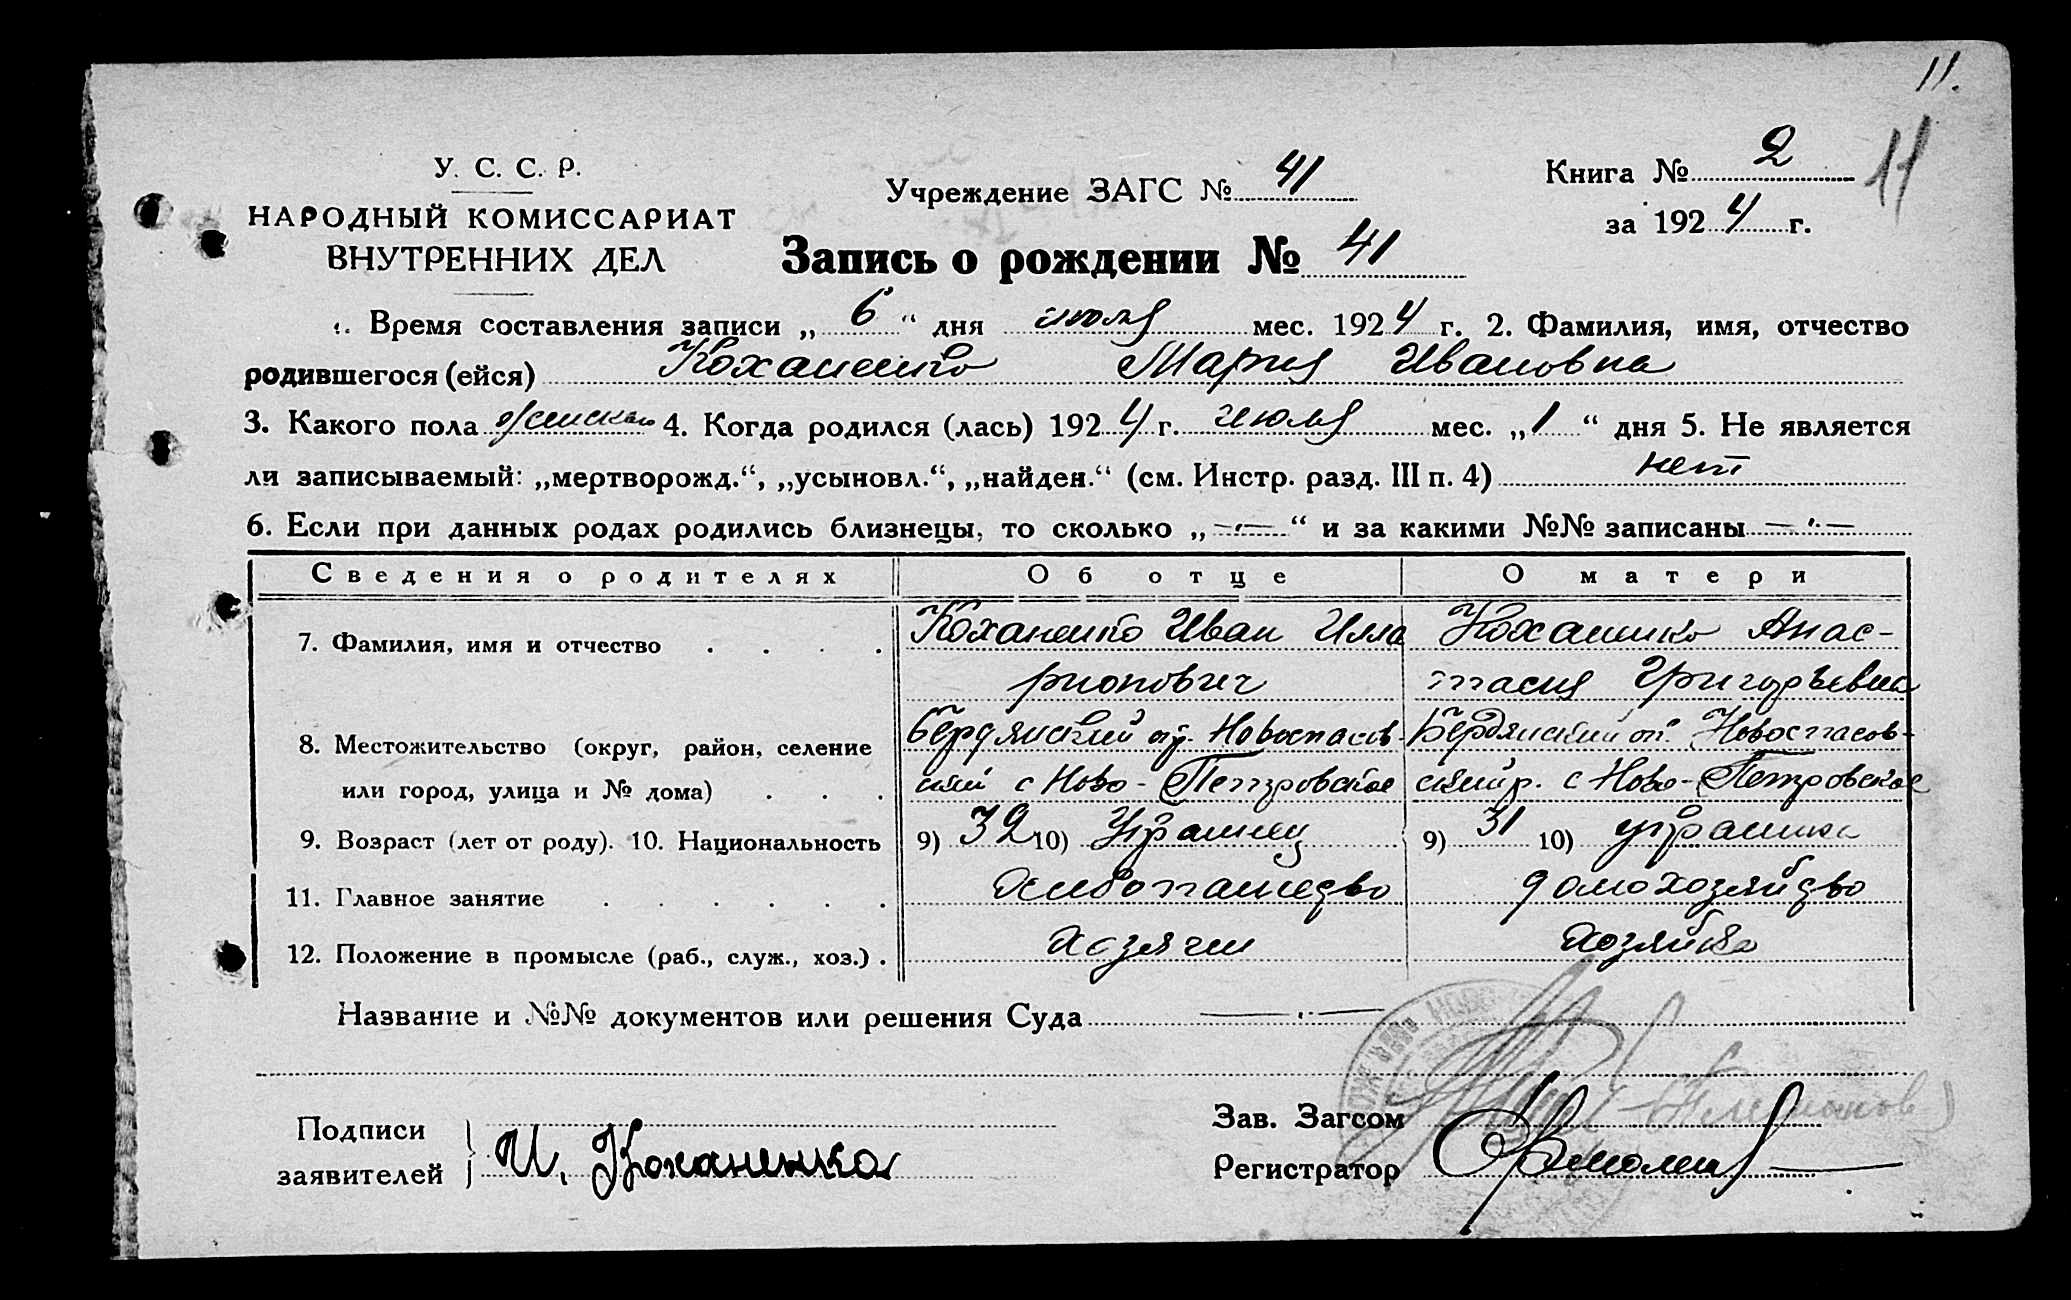 11.
У. С. С. Р.
НАРОДНЫЙ КОМИССАРИАТ
ВНУТРЕННИХ ДЕЛ
Учреждение ЗАГС № 41
Книга № 2
11
за 1924 г.
Запись о рождении № 41
1. Время составления записи „ 6 “ дня июля мес. 1924 г. 2. Фамилия, имя, отчество
родившегося (ейся) Коханенко Мария Ивановна
3. Какого пола женскаго 4. Когда родился (лась) 1924 г. июля мес. „ 1 “ дня 5. Не является
ли записываемый: „мертворожд.“, „усыновл.“, „найден.“ (см. Инстр. разд. III п. 4) нет
6. Если при данных родах родились близнецы, то сколько „ —„— “ и за какими №№ записаны —„—
Сведения о родителях Об отце О матери
7. Фамилия, имя и отчество . . . . Коханенко Иван Илла Коханенко Анас-
рионович тасия Григорьевна
8. Местожительство (округ, район, селение Бердянский окр. Новоспасов- Бердянский ок. Новоспасов-
или город, улица и № дома) . . . ский с Ново-Петровское ский р. с Ново-Петровское
9. Возраст (лет от роду). 10. Национальность 9) 32 10) Украинец 9) 31 10) украинка
11. Главное занятие . . . . . . Хлебопашедво домохозяйдво
12. Положение в промысле (раб., служ., хоз.) . хозяин хозяйка
Название и №№ документов или решения Суда —„—
Подписи
заявителей И. Коханенко
Зав. Загсом
Регистратор